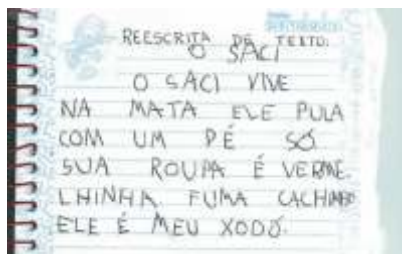 REESCRITA DE TEXTO.
O SACI
O SACI VIVE
NA MATA ELE PULA
COM UM PÉ SÓ.
SUA ROUPA É VERME-
LHINHA FUMA CACHIMBO
ELE É MEU XODÓ.